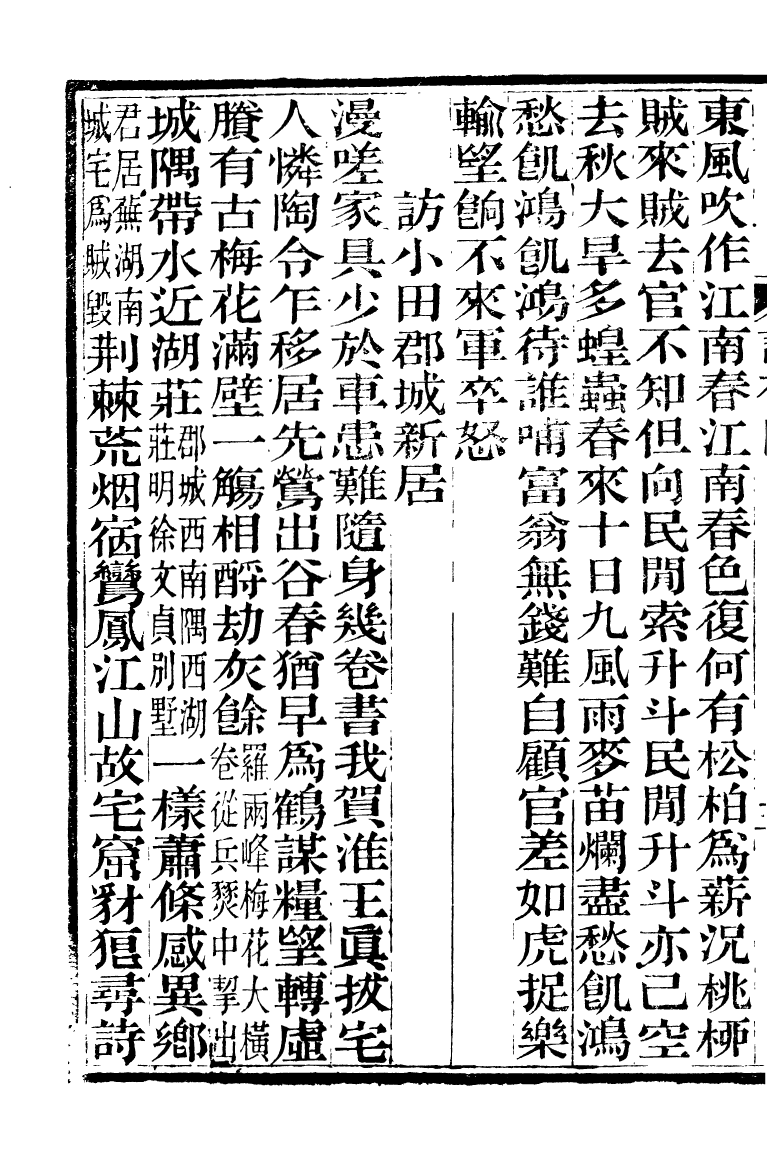 東風吹作江南春江南春色復何有松柏爲薪況桃栁
賊來賊去官不知但向民閒索升斗民閒升斗亦已空
去秋大旱多蝗蟲春來十日九風雨麥苗爛盡愁飢鴻
愁飢鴻飢鴻待誰哺富翁無錢難自顧官差如虎捉樂
輸望餉不來軍卒怒
訪小田郡城新居
漫嗟家具少於車患難隨身幾卷書我賀淮王眞拔宅
人憐陶令乍移居先鶯出谷春猶早爲鶴謀糧望轉虛
賸有古梅花滿壁一觴相酹劫灰餘羅兩峰梅花大橫卷從兵燹中挈出
城隅帶水近湖莊郡城西南隅西湖莊明徐文貞別墅一樣蕭條感異鄉
君居蕪湖南城宅爲賊毀荆棘荒烟宿鸞鳳江山故宅窟豺狼尋詩